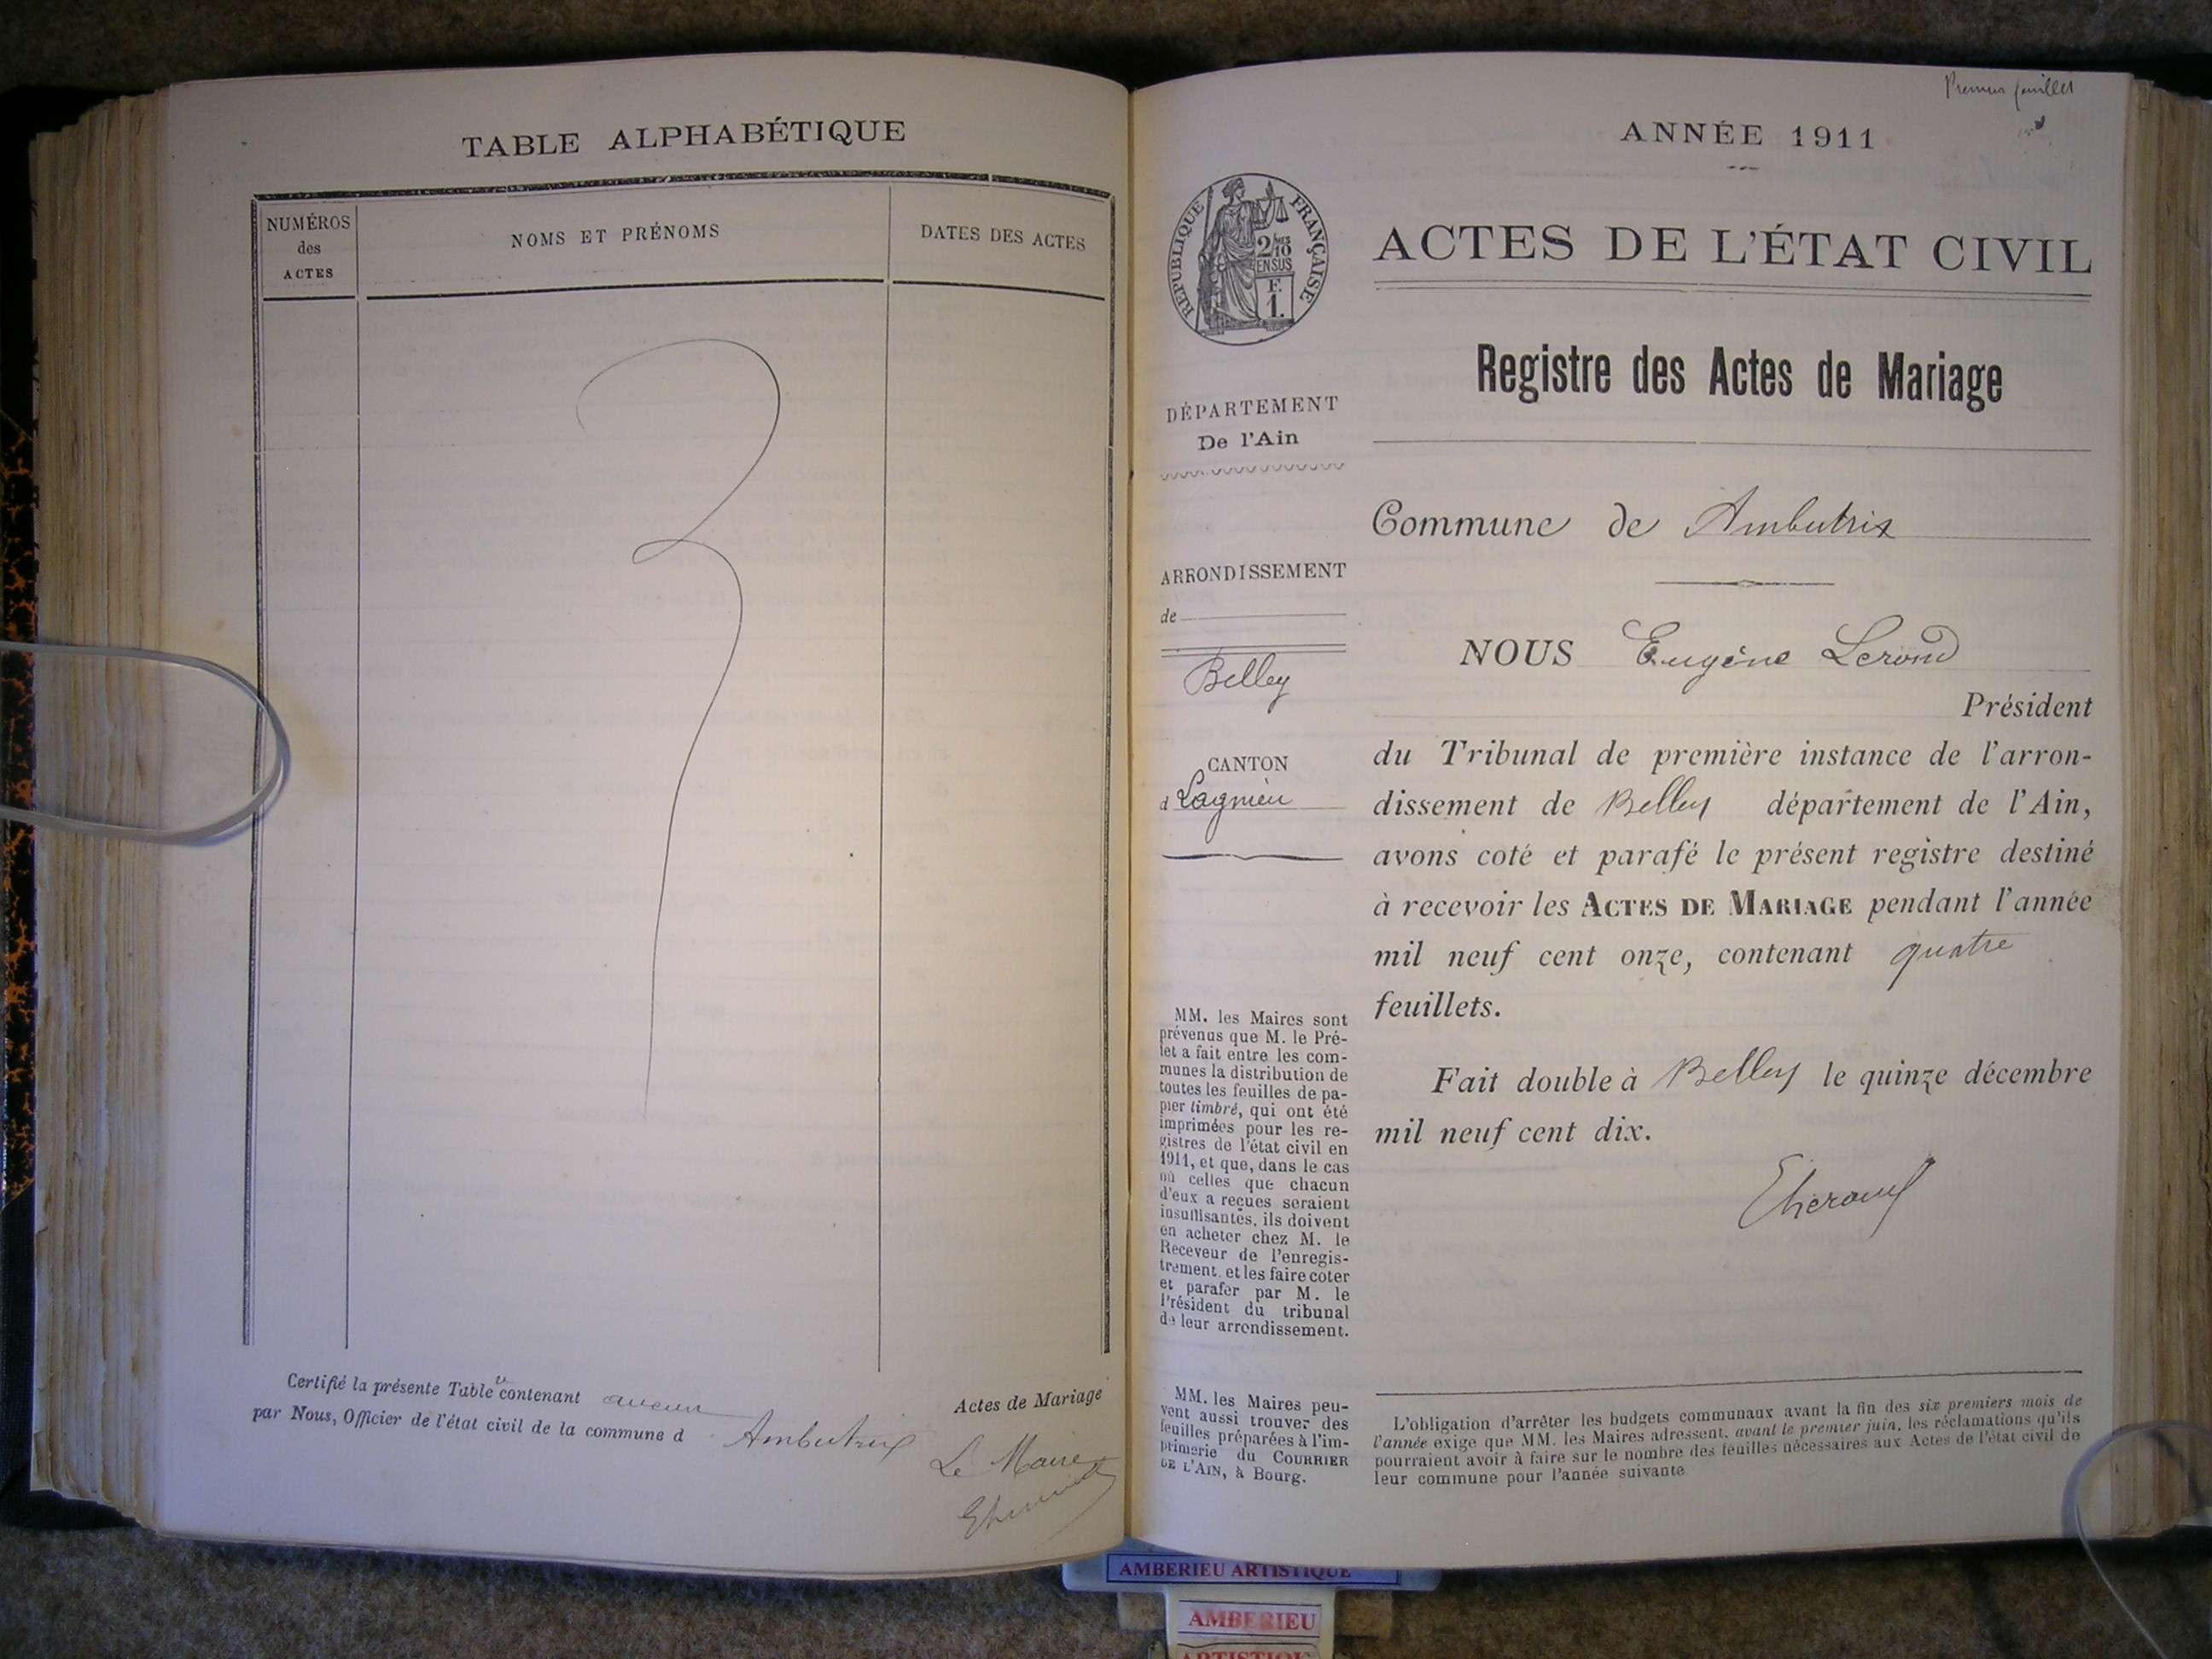 TABLE ALPHABÉTIQUE
NUMÉROS
des
ACTES
NOMS ET PRÉNOMS
DATES DES ACTES
Certifié la présente Table contenant aucun Actes de Mariage
par Nous, Officier de l'état civil de la commune d Ambutrix
Le Maire
Premier feuillet
ANNÉE 1911
RÉPUBLIQUE FRANÇAISE
2/10
EN SUS
F.
1.
ACTES DE L'ÉTAT CIVIL
Registre des Actes de Mariage
DÉPARTEMENT
De l'Ain
ARRONDISSEMENT
de
Belley
CANTON
d Lagnieu
MM. les Maires sont
prévenus que M. le Pré-
fet a fait entre les com-
munes la distribution de
toutes les feuilles de pa-
pier timbré, qui ont été
imprimées pour les re-
gistres de l'état civil en
1911, et que, dans le cas
où celles que chacun
d'eux a reçues seraient
insuffisantes, ils doivent
en acheter chez M. le
Receveur de l'enregis-
trement, et les faire coter
et parafer par M. le
Président du tribunal
de leur arrondissement.
MM. les Maires peu-
vent aussi trouver des
feuilles préparées à l'im-
primerie du COURRIER
DE L'AIN, à Bourg.
Commune de Ambutrix
NOUS Eugène Lerond
Président
du Tribunal de première instance de l'arron-
dissement de Belley département de l'Ain,
avons coté et parafé le présent registre destiné
à recevoir les ACTES DE MARIAGE pendant l'année
mil neuf cent onze, contenant quatre
feuillets.
Fait double à Belley le quinze décembre
mil neuf cent dix.
L'obligation d'arrêter les budgets communaux avant la fin des six premiers mois de
l'année exige que MM. les Maires adressent, avant le premier juin, les réclamations qu'ils
pourraient avoir à faire sur le nombre des feuilles nécessaires aux Actes de l'état civil de
leur commune pour l'année suivante
AMBERIEU ARTISTIQUE
AMBERIEU